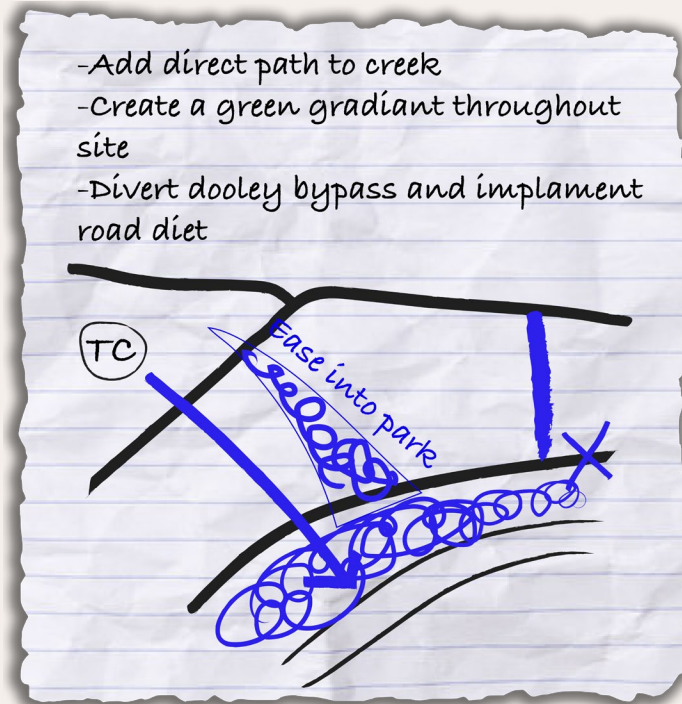 -Add direct path to creek
-Create a green gradiant throughout
site
-Divert dooley bypass and implament
road diet
TC
Ease into park